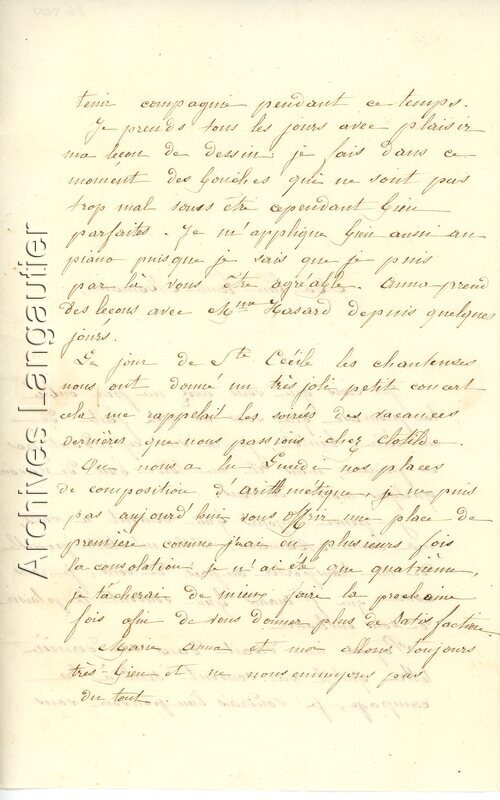 tenir compagnie pendant ce temps.
Je prends tous les jours avec plaisir
ma leçon de dessin. je fais dans ce
moment des bouches qui ne sont pas
trop mal sans être cependant bien
parfaites. Je m'applique bien aussi au
piano puisque je sais que je puis
par là vous être agréable. Anna prend
des leçons avec Mme Hasard depuis quelques
jours.
Le jour de Ste Cécile les chanteuses
nous ont donné un très joli petit concert
cela me rappelait les soirées des vacances
dernières que nous passions chez Clotilde.
On nous a lu Lundi nos places
de composition d'arithmétique, je ne puis
pas aujourd'hui vous offrir une place de
première comme j'en ai eu plusieurs fois
la consolation, je n'ai été que quatrième,
je tâcherai de mieux faire la prochaine
fois afin de vous donner plus de satisfaction.
Marie Anna et moi allons toujours
très-bien et ne nous ennuyons pas
du tout
Archives Langautier